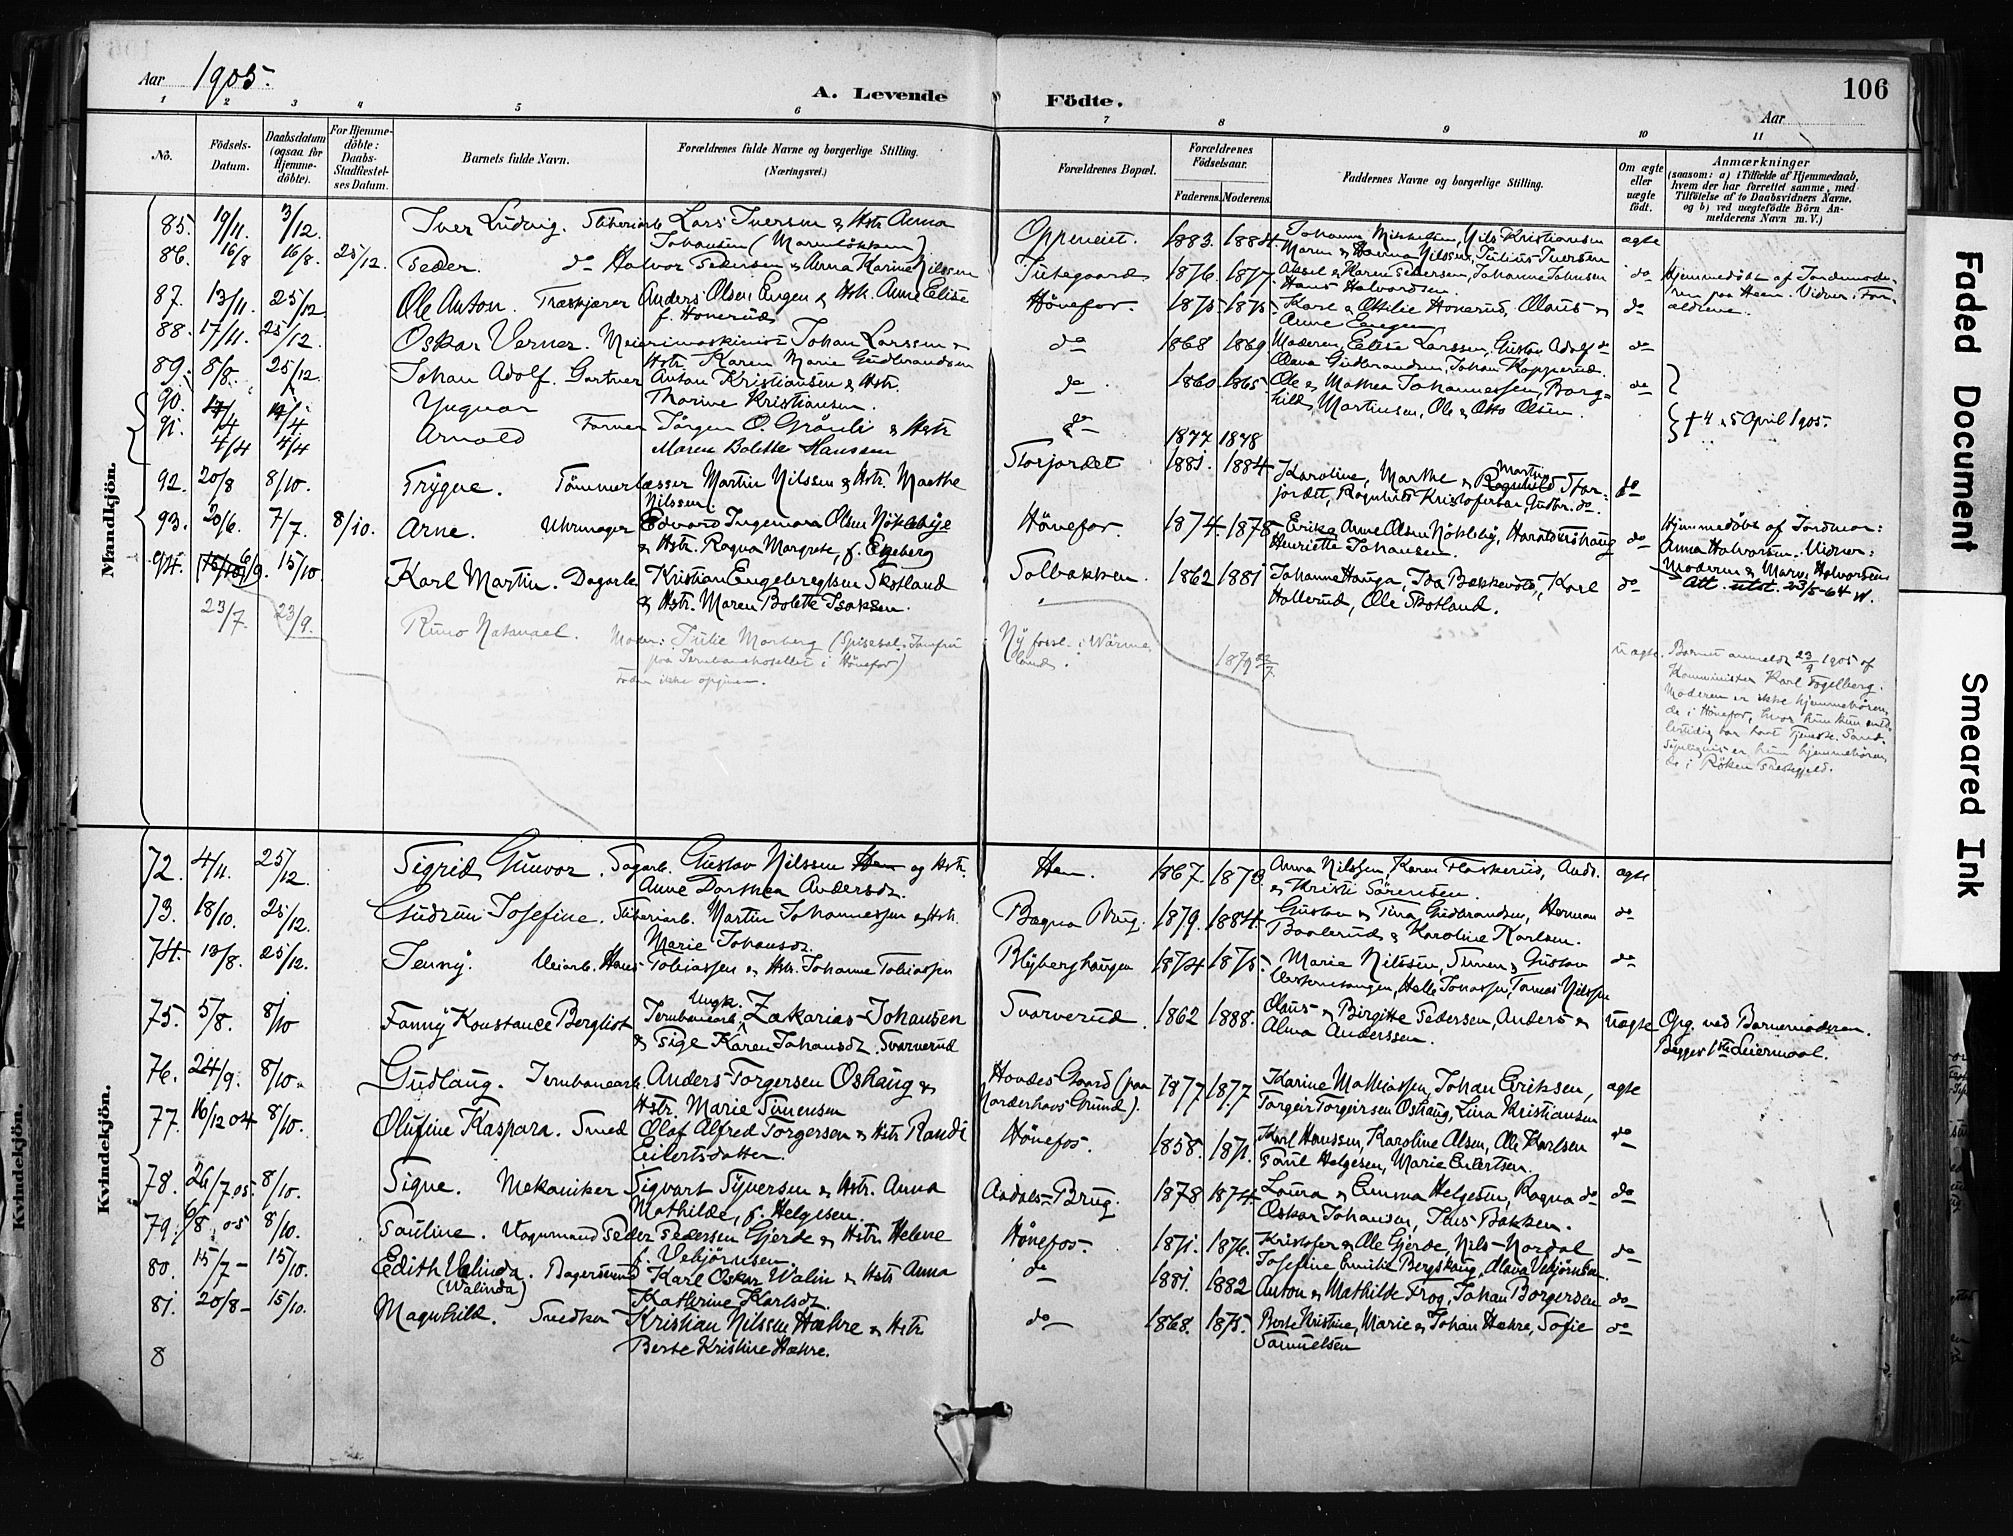 Aar 1905.
A. Levende Födte.
106
Aar
1 2 3 4 5 6 7 8 9 10 11
No.
Födsels-Datum.
Daabsdatum (ogsaa for Hjemme-döbte).
For Hjemme-döbte: Daabs-Stadfæstel-ses Datum.
Barnets fulde Navn.
Forældrenes fulde Navne og borgerlige Stilling. (Næringsvei.)
Forældrenes Bopæl.
Forældrenes Födselsaar.
Faderens. Moderens.
Faddernes Navne og borgerlige Stilling.
Om ægte eller uægte födt.
Anmærkninger
(saasom: a) i Tilfælde af Hjemmedaab,
hvem der har forrettet samme, med
Tilföielse af to Daabsvidners Navne.
og b) ved uægtefödte Börn An-
melderens Navn m. V.)
Mandkjön.
85. 19/11. 3/12. Iver Ludvig. Sliberiarb. Lars Iversen & Hstr. Anna
Johansen (Marenløkken) Oppeneiet. 1883. 1884. Johanne Mikkelsen, Nils Kristiansen
Maren & Hanna Nilssen, Julius Iversen ægte
86. 16/8 16/8. 25/12. Peder. do Halvor Pedersen & Anna Karine Nilssen
1876. 1877. Aksel & Karen Pedersen, Johanne Johnsen
Hans Halvorsen. do Hjemmedöbt af Jordmode-
ren paa Heen. Vidner: For-
ældrene.
87. 13/11. 25/12 Ole Anton. Træskjærer Anders Olsen Engen & Hstr. Anne Elise
f. Honerud Hönefos. 1875. 1875. Karl & Ottilie Honerud, Olaus &
Anne Engen do
88. 17/11. 25/12. Oskar Verner. Meierimaskinist Johan Larssen &
Hstr. Karen Marie Gudbrandsen do 1868 1869 Moderen, Elise Larssen, Gustav Adolf do
Olava Gudbrandsen, Johan Kopperud. do
89. 8/8. 25/12. Johan Adolf. Gartner Anton Kristiansen & Hstr.
Thorine Kristiansen. do 1860. 1865. Ole & Mathea Johannessen, Borg-
hild Martinsen, Ole & Otto Olsen. do
90. 4/4 4/4. Yngvar
91. 4/4 4/4 Arnold Farver Jörgen O. Grönli & Hstr
Maren Bolette Hanssen do 1877 1878 † 4 & 5 April 1905.
92. 20/8 8/10. Trygve. Tömmerlæsser Martin Nilssen & Hstr. Marthe
Nilssen. Storjordet 1881. 1884. Karoline, Marthe & Martin Stor-
jordet, Ragnhild Kristofersen, Gudbr. do. do
93. 20/6. 7/7. 8/10. Arne. Uhrmager Edvard Ingemann Olsen Nökleby
& Hstr. Ragna Margrete, f. Engeberg Hönefos. 1874. 1878 Erika Anne Olsen Nökleby, Harald Amshaug
Henriette Johansen. do Hjemmedöbt af Jordmor:
Anna Halvorsen. Vidner:
Moderen & Marie Halvorsen
94. (15/10) 6/9. 15/10. Karl Martin. Dagarb. Kristian Engebregtsen Skotland
& Hstr. Maren Bolette Isaksen. Solbakken. 1862 1881 Johanne Hauga, Ida Bækkevold, Karl
Hollerud, Ole Skotland. do Att. utst. 23/5-64
23/7. 23/9. Runo Natanael. Moder: Julie Morberg (Spisesal-Jomfru
paa Jernbanehotellet i Hönefos)
Fader ikke opgiven. Ny forsl. i Wärm-
land. 1879 23/7 uægte. Barnet anmeldt 23/9 1905 af
Komminister Karl Fogelberg.
Moderen er ikke hjemmehören-
de i Hönefos, hvor hun kun mid-
lertidig har havt Tjeneste. Sand-
synligvis er hun hjemmehören-
de i Röken Prestegjeld.
Kvindekjön.
Kvindekjön.
72. 4/11. 25/12. Sigrid Gunvor. Sagarb. Gustav Nilssen Hen og Hstr.
Anne Dorthea Andersdt. Hen. 1867. 1873. Anna Nilssen, Karen Flaskerud, Ands.
& Kristi Sörensen. ægte
73. 18/10. 25/12. Gudrun Josefine. Sliberiarb. Martin Johannessen & Hstr.
Marie Johansdt. Bægna Brug. 1879. 1884. Gustav & Tina Gudbrandsen, Herman
Baalerud & Karoline Karlsen. do
74. 13/8. 25/12. Jenny. Veiarb. Hans Tobiassen & Hstr. Johanne Tobiassen Blyberghaugen 1874 1875. Marie Nilssen, Simen & Gustav
Helle Jonassen, Tomas Nilssen do
75. 5/8. 8/10 Fanny Konstance Bergliot Jernbanearb. Ungk. Zakarias Johansen
& Pige Karen Johansdt. Svarverud Svarverud. 1862 1888. Olaus & Birgitte Pedersen, Anders &
Alma Anderssen. Uægte Opg. ved Barnemoderen.
Begges 1ste Leiermaal.
76. 24/9. 8/10. Gudlaug. Jernbanearb. Anders Torgersen Oshaug &
Hstr. Marie Simensen Hondes Gaard (paa
Norderhovs Grund). 1877 1877 Karine Mathiassen, Johan Eriksen,
Torgeir Torgeirsen Oshaug, Lina Kristiansen ægte
77. 16/12 04 8/10. Olufine Kaspara. Smed Olaf Alfred Torgersen & Hstr Randi
Eilertsdatter. Hönefos. 1858. 1871. Karl Hanssen, Karoline Olsen, Ole Karlsen
Paul Helgesen, Marie Eilertsen. do
78. 26/7 05. 8/10. Signe. Mekaniker Sigvart Syversen & Hstr. Anna
Mathilde, f. Helgesen. Aadals-Brug. 1878 1874. Laura & Emma Helgesen, Ragna do
Oskar Johansen, Jens Bakken. do
79. 6/8 05 8/10. Pauline. Vognmand Peder Pedersen Gjerde & Hstr. Helene
f. Vebjörnsen Hönefos. 1871. 1876. Kristofer & Ole Gjerde, Nils Nordal
Josefine Emilie Bergskaug, Olava Vebjörnsen. do
80. 15/7 - 15/10. Edith Valinda. (Walinda) Bagersvend Karl Oskar Walin & Hstr Anna
Kathrine Karlsdt. do 1881. 1882 Anton & Mathilde Frog, Johan Borgersen do
81. 20/8 - 15/10. Magnhild. Snedker Kristian Nilssen Hæhre & Hstr
Berte Kristine Hæhre. do 1868. 1875. Berte Kristine, Marie & Johan Hæhre, Sofie
Samuelsen do
8
Faded Document
Smeared Ink